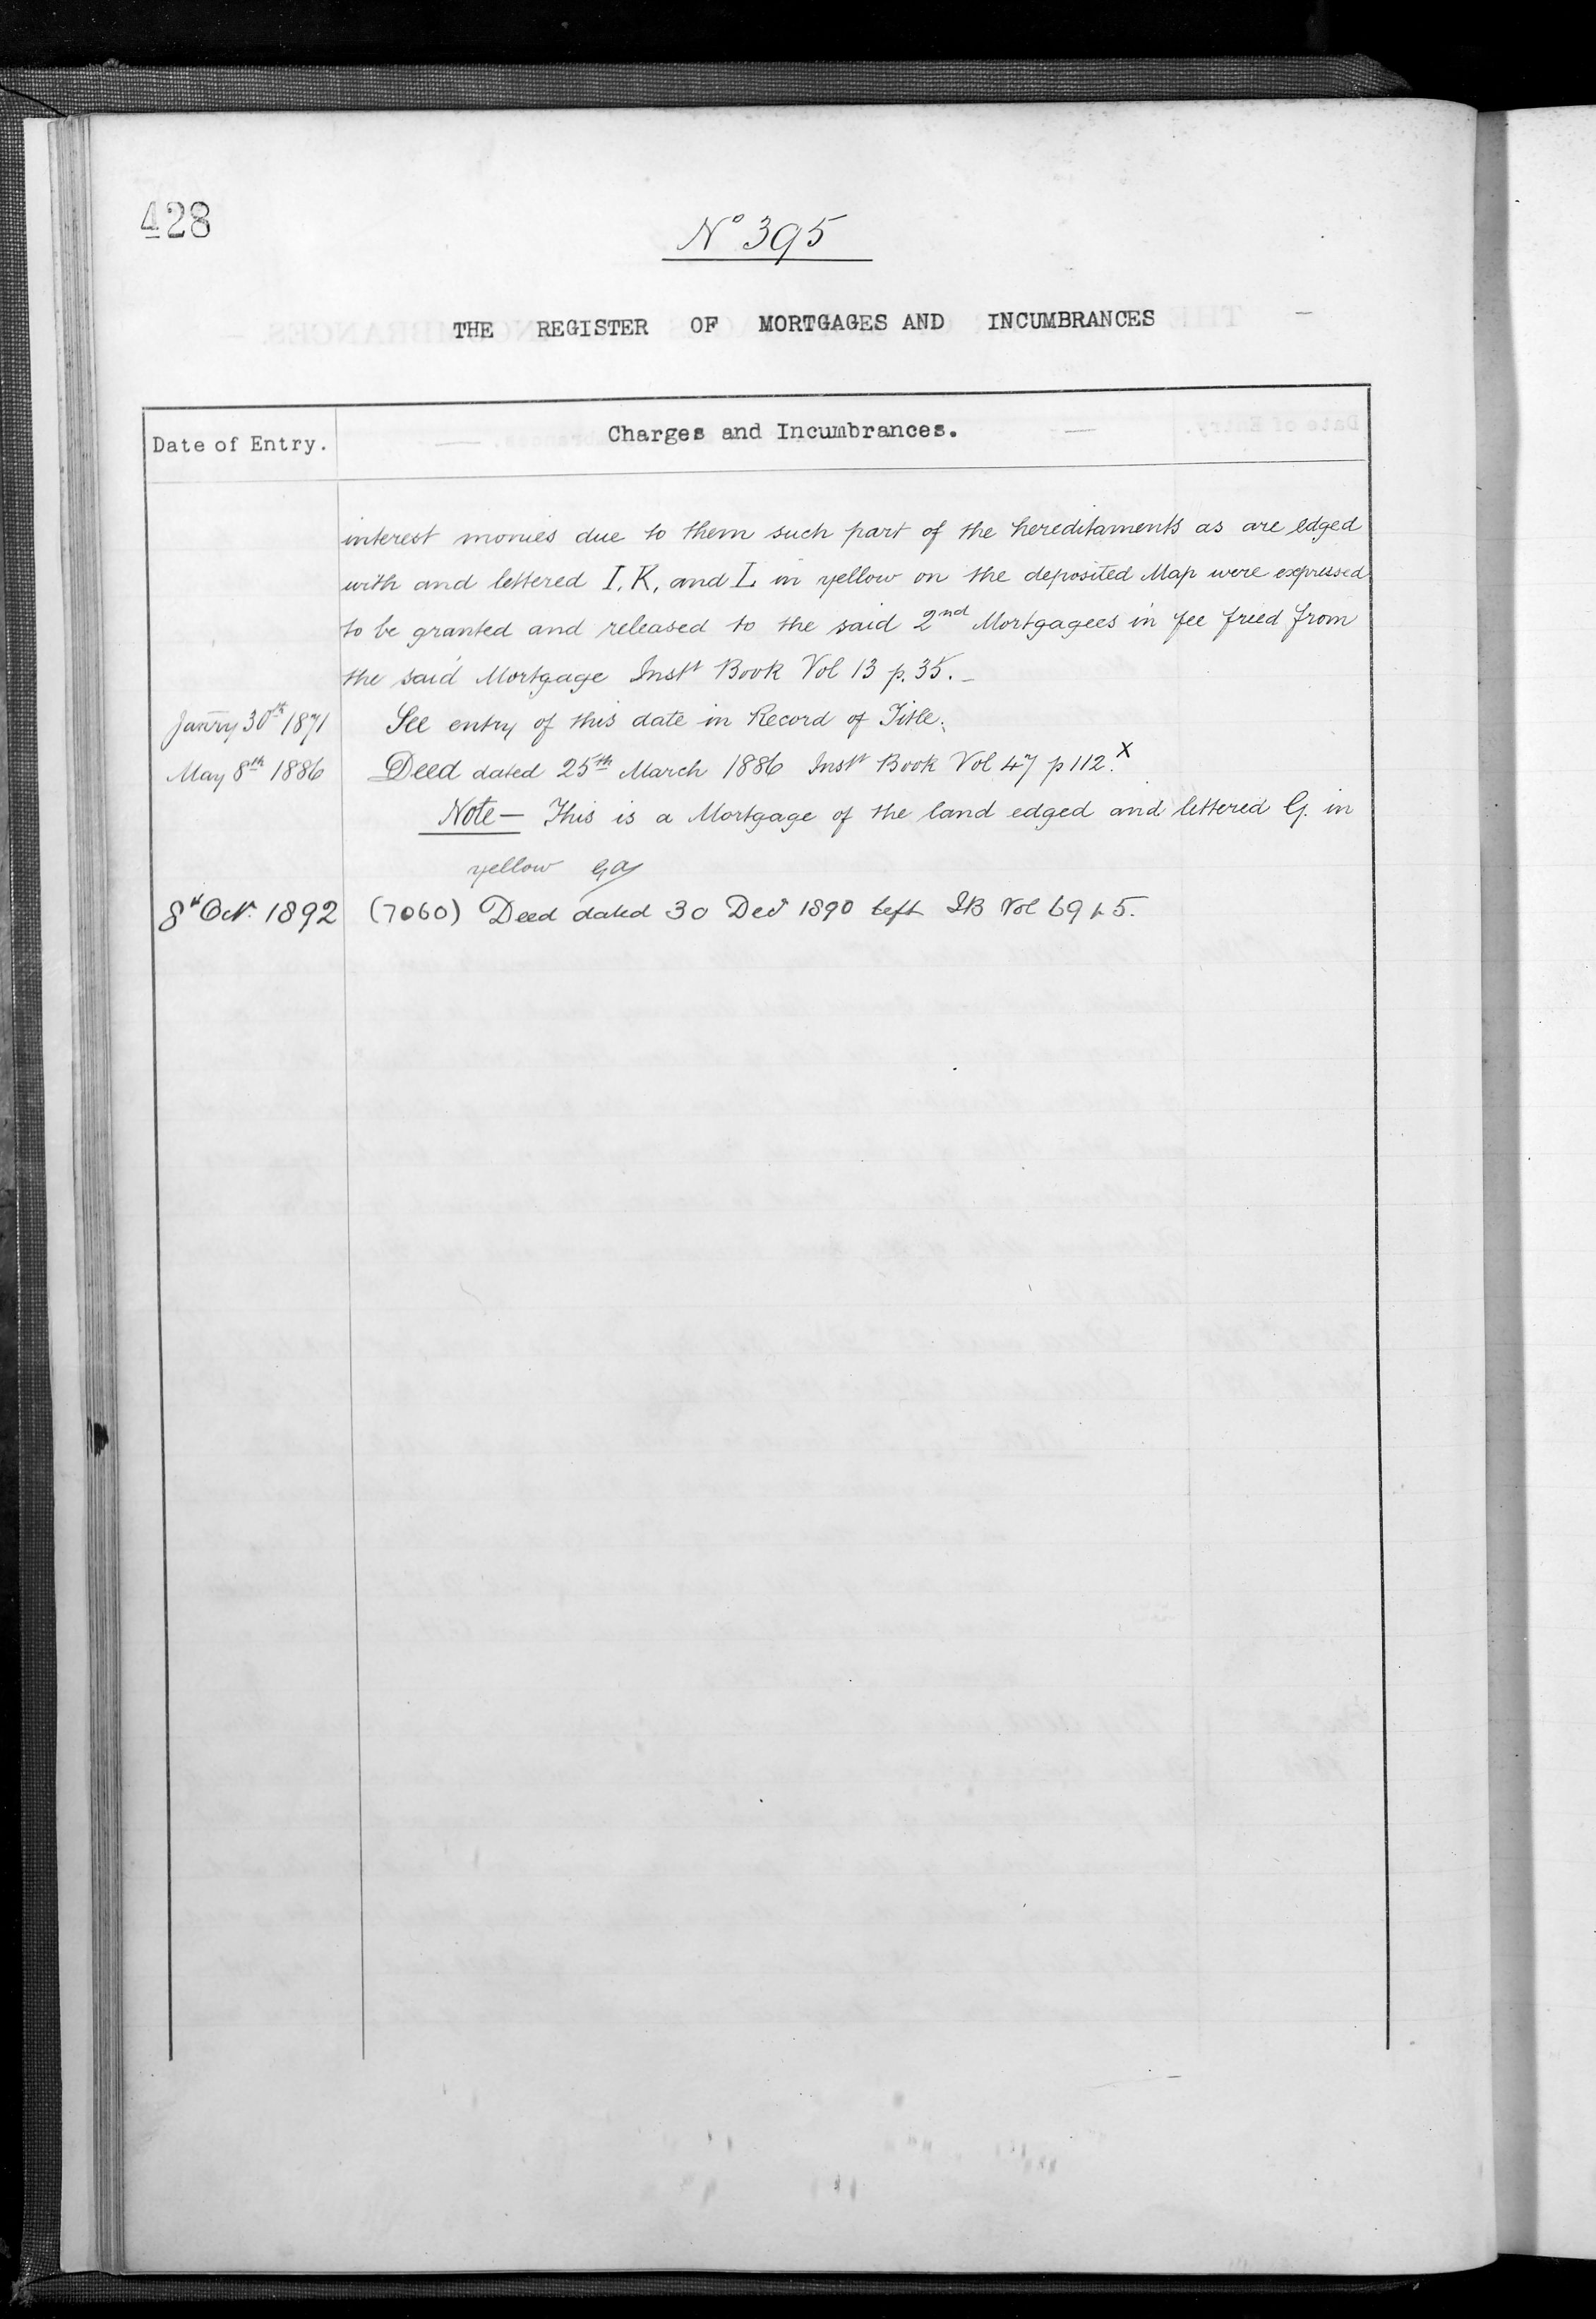 428
No 395
THE REGISTER OF MORTGAGES AND INCUMBRANCES
Date of Entry.
Charges and Incumbrances.
interest monies due to them such part of the hereditaments as are edged
with and lettered I, K, and L in yellow on the deposited Map were expressed
to be granted and released to the said 2nd Mortgagees in fee freed from
the said Mortgage Inst Book Vol 13 p. 35.
Janry 30th 1871 See entry of this date in Record of Title.
May 8th 1886 Deed dated 25th March 1886 Inst Book Vol 47 p 112. X
Note — This is a Mortgage of the land edged and lettered G. in
yellow
8th Oct. 1892 (7060) Deed dated 30 Decr 1890 left IB Vol 69 p 5.